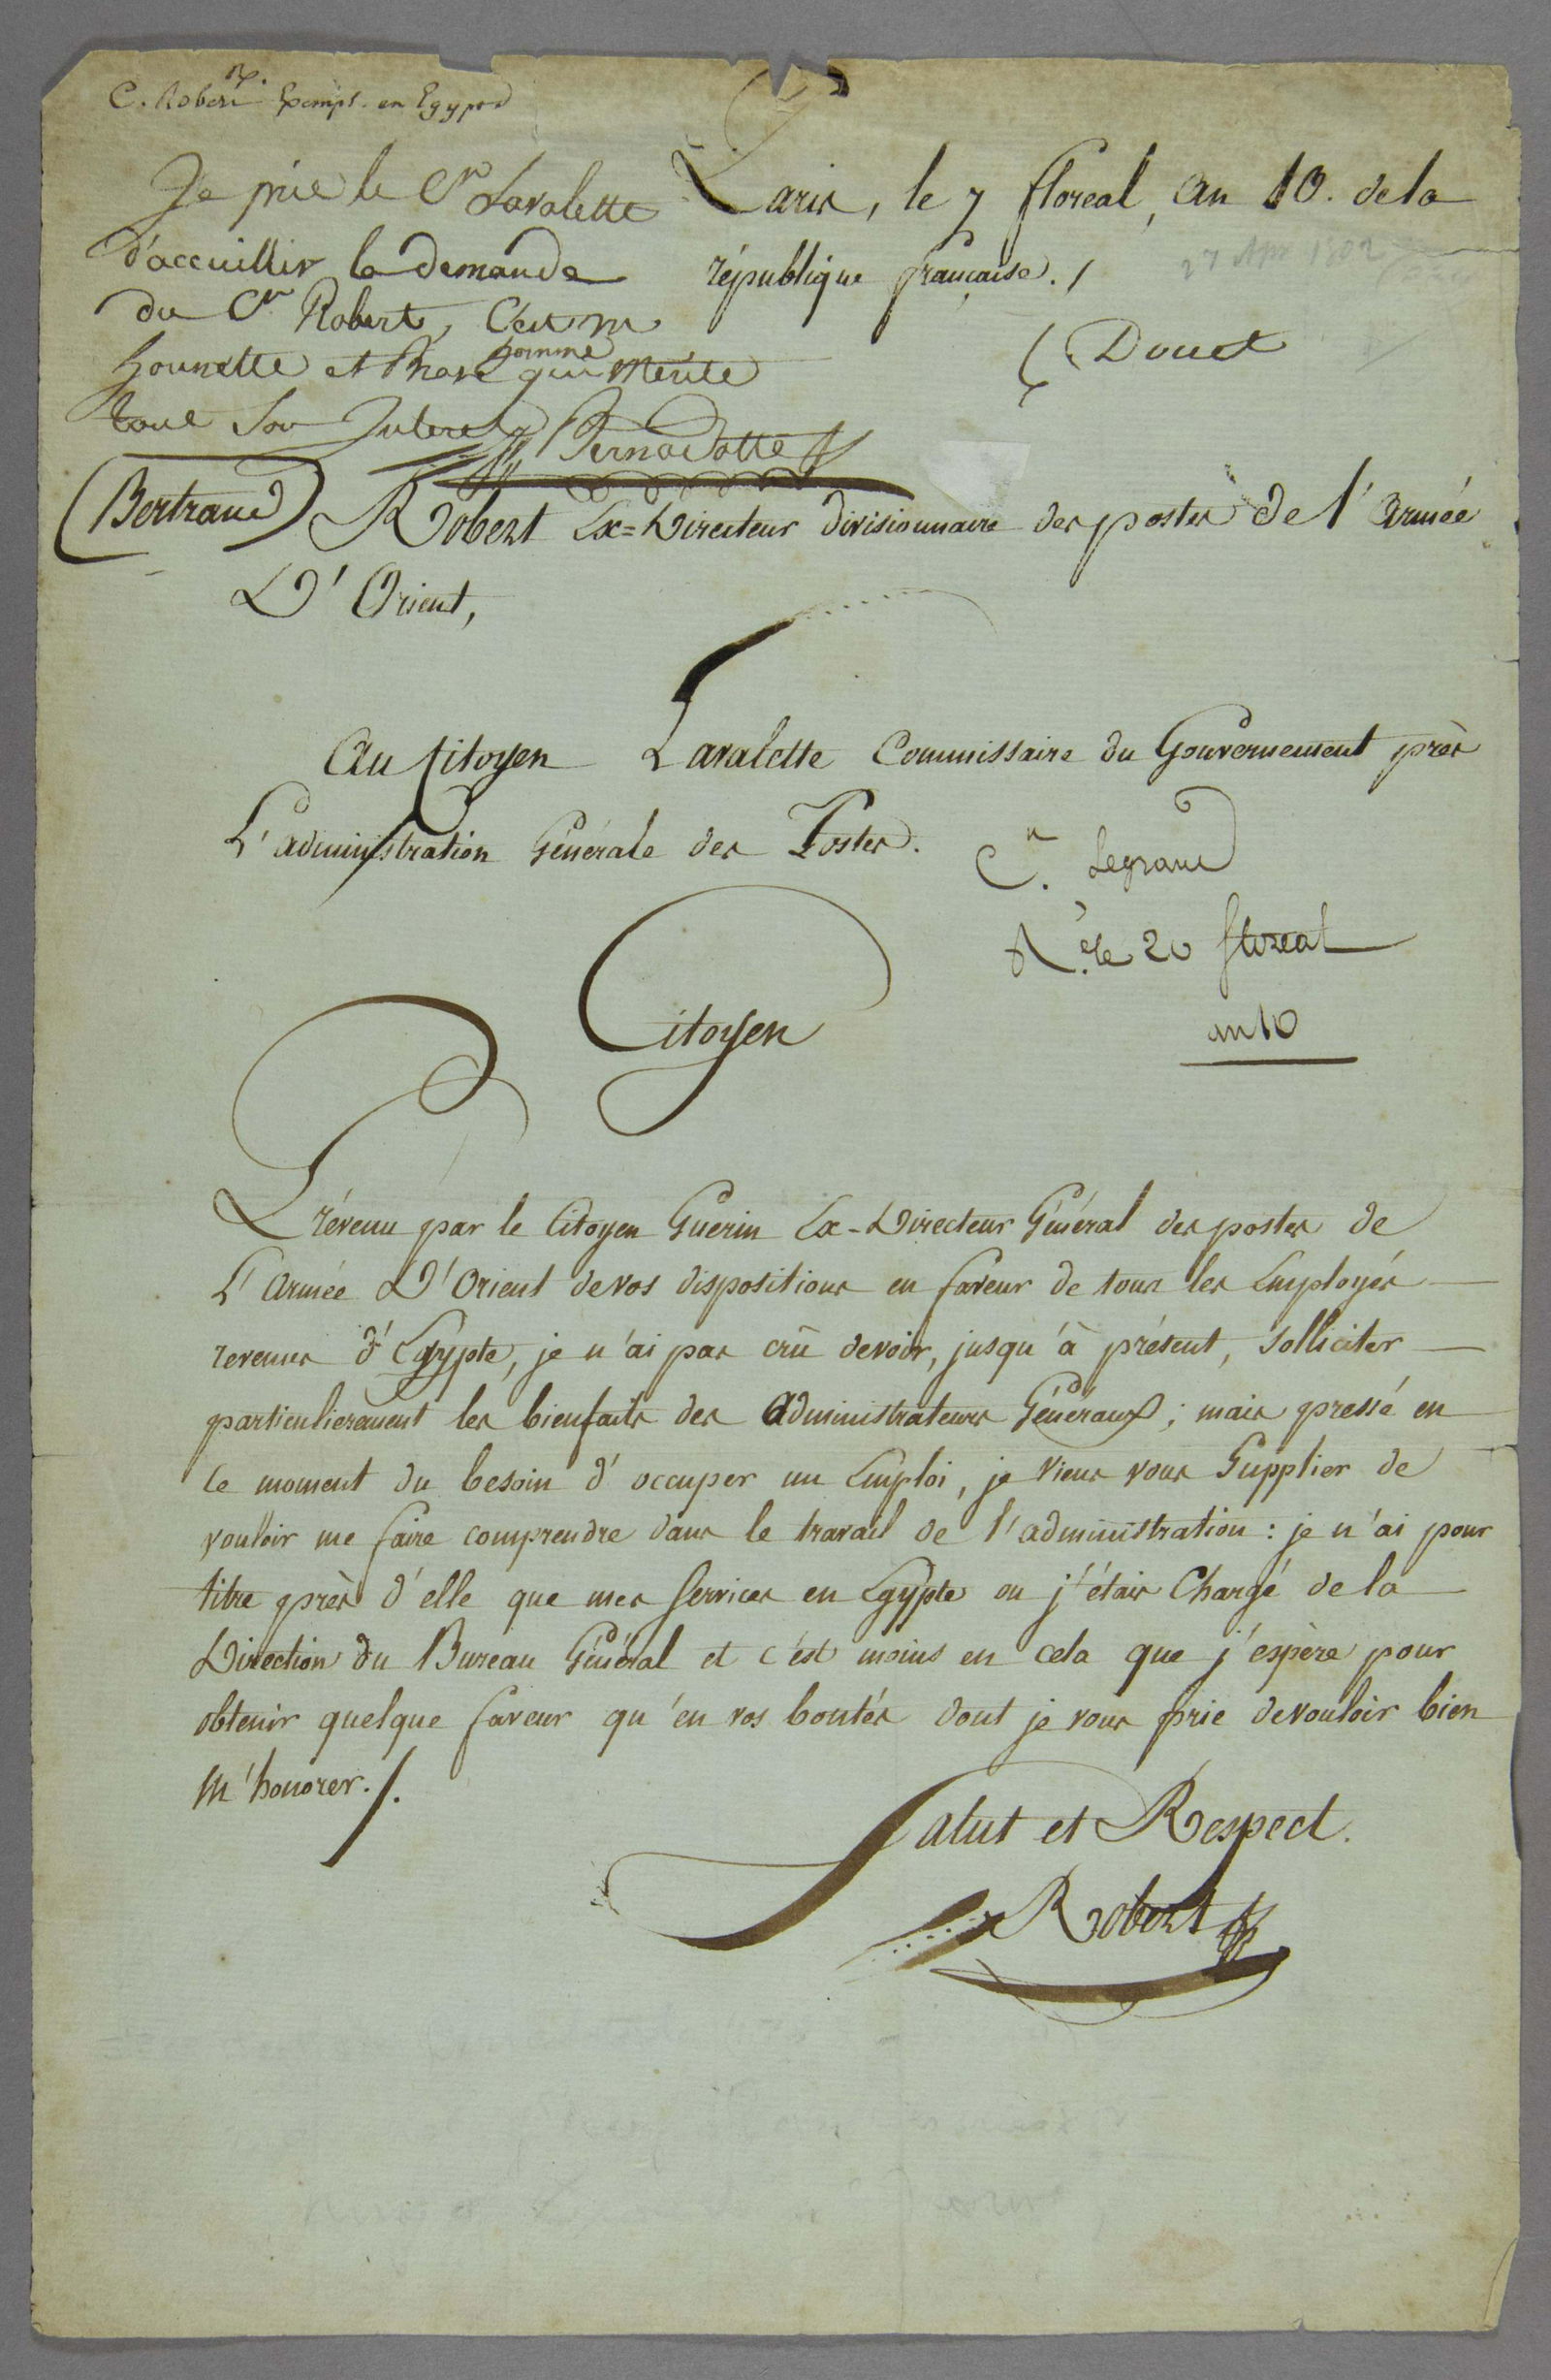 C. Robert Exempt. en Egypte
Je prie le Cn Lavalette
d'accuillir la demande
du Cn Robert, C'est un
homme
hounette et Brave qui Mérite
tout Son Interet
Bernadotte
Paris, le 7 floreal, an 10. de la
république française./
27 Apr 1802
Douet
(Bertrand)
Robert Ex=Directeur divisionnaire des postes de l'armée
D'Orient,
Au Citoyen Lavalette Commissaire du Gouvernement près
L'administration Générale des Postes.
Cn. Legrand
R. le 20 floreal
an 10
Citoyen
Prévenu par le Citoyen Guerin Ex-Directeur Général des postes de
L'armée D'Orient de vos dispositions en faveur de tous les Employés
revenus d'Egypte, je n'ai pas crû devoir, jusqu'à présent, solliciter
particulierement les bienfaits des administrateurs Généraux; mais pressé en
ce moment du besoin d'occuper un Emploi, je viens vous Supplier de
vouloir me faire comprendre dans le travail de l'administration: je n'ai pour
titre près d'elle que mes Services en Egypte ou j'étais Chargé de la
Direction du Bureau Général et c'est moins en cela que j'espère pour
obtenir quelque faveur qu'en vos bontés dont je vous prie de vouloir bien
m'honorer./.
Salut et Respect.
Robert